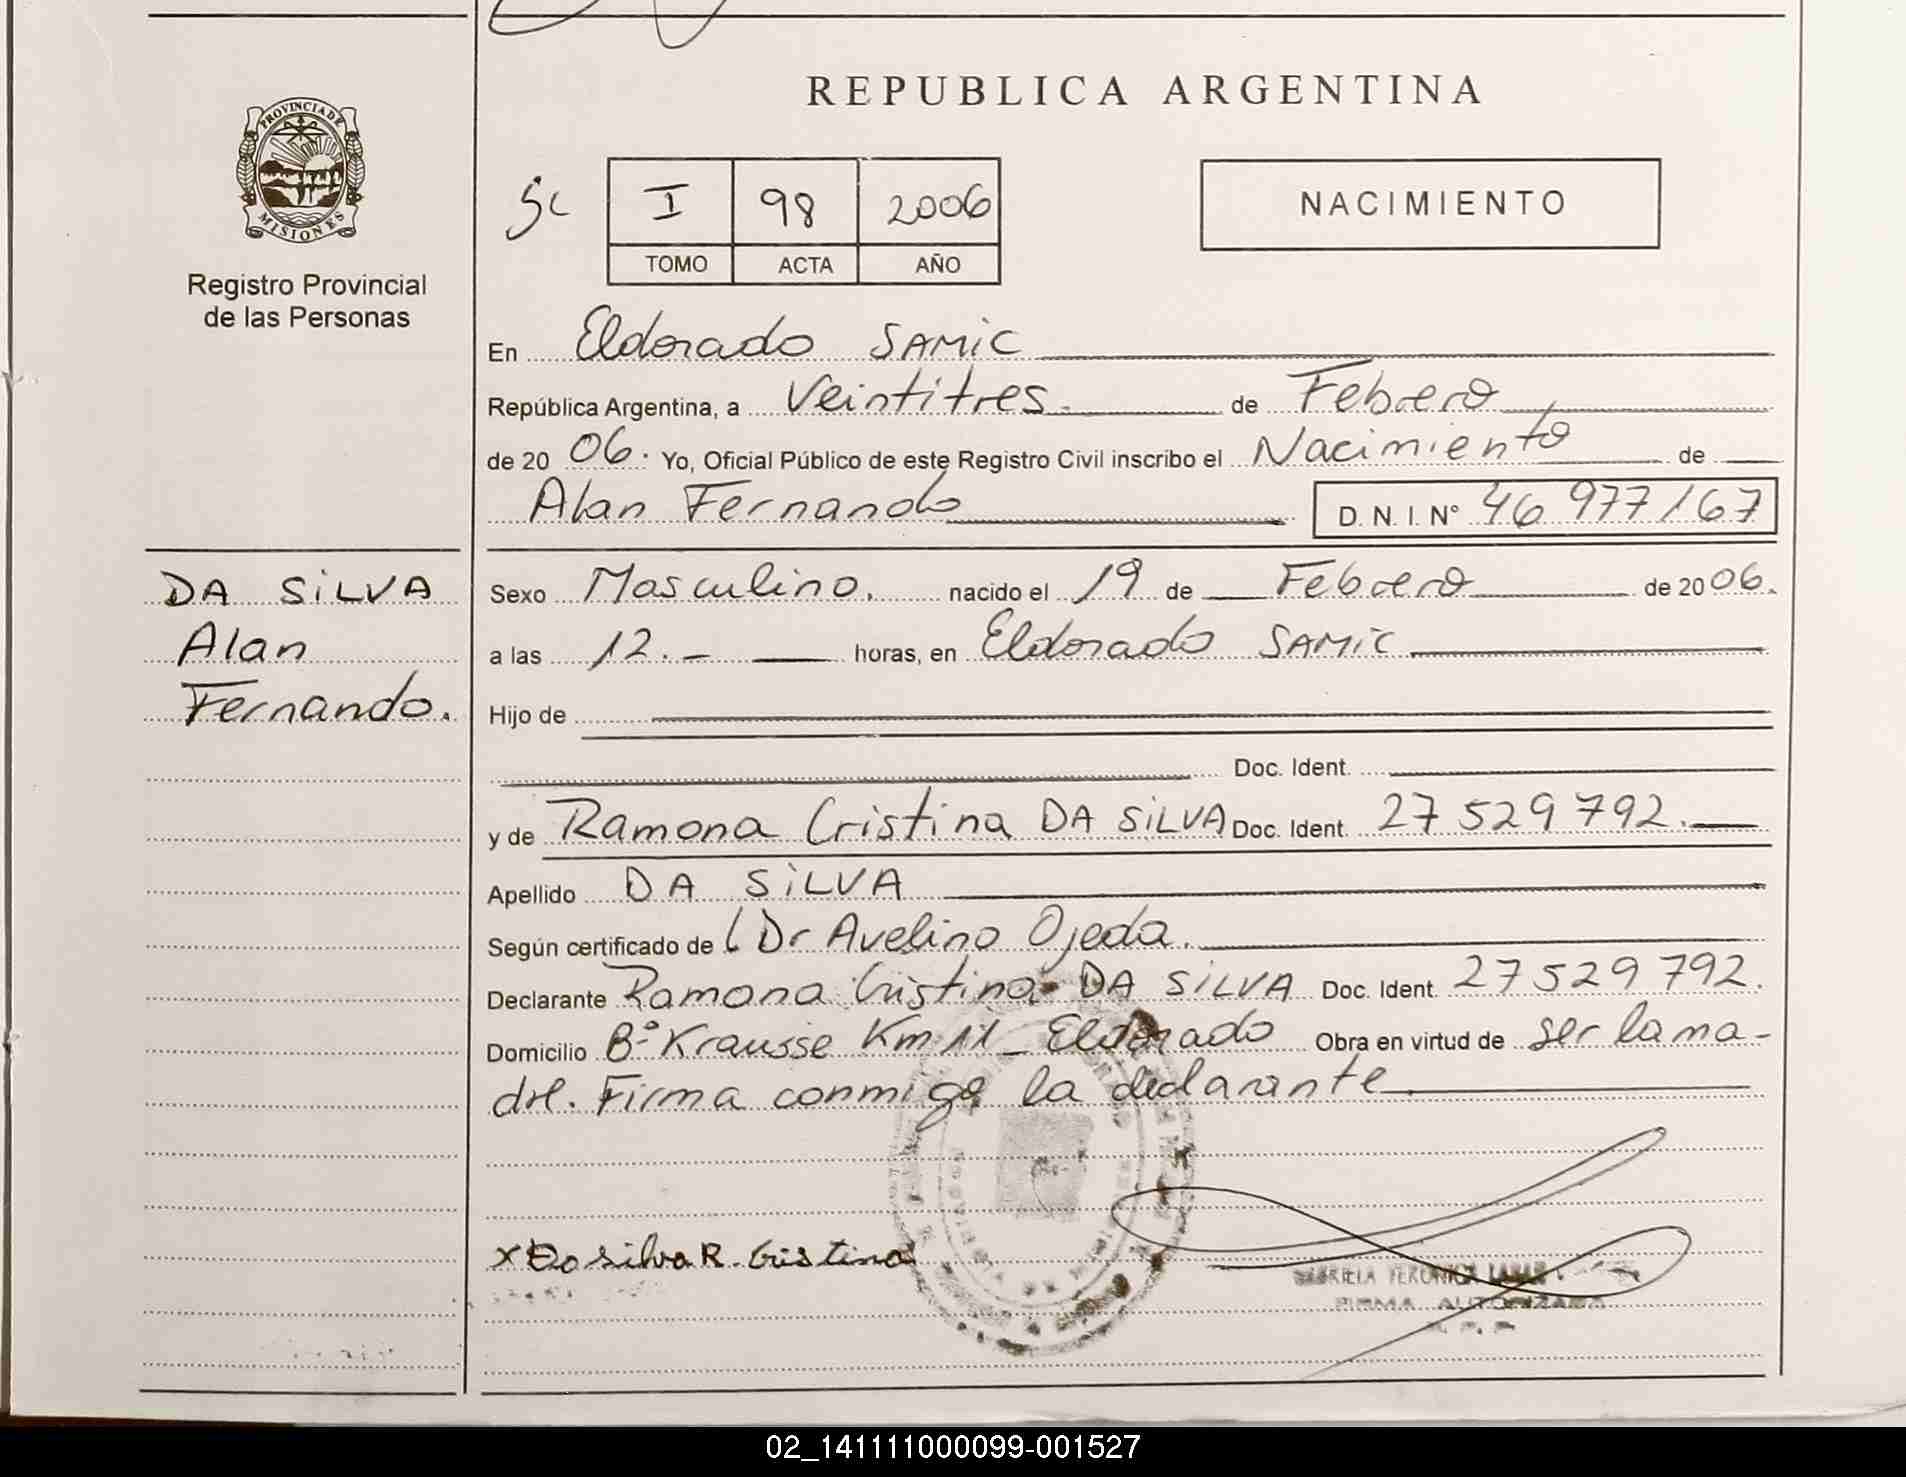 REPUBLICA ARGENTINA
PROVINCIA DE
MISIONES
Registro Provincial
de las Personas
I 98 2006
TOMO ACTA AÑO
NACIMIENTO
En Eldorado SAMiC
República Argentina, a Veintitres. de Febrero
de 20 06. Yo, Oficial Público de este Registro Civil inscribo el Nacimiento de
Alan Fernando D. N. I. N° 46 977 167
DA SiLVA
Alan
Fernando.
Sexo Masculino. nacido el 19 de Febrero de 20 06.
a las 12.- horas, en Eldorado SAMiC
Hijo de
Doc. Ident.
y de Ramona Cristina DA SiLVA Doc. Ident. 27 529 792.
Apellido DA SiLVA
Según certificado de Dr Avelino Ojeda.
Declarante Ramona Cristina DA SiLVA Doc. Ident. 27 529 792.
Domicilio B° Krausse Km 11 - Eldorado Obra en virtud de ser la ma-
dre. Firma conmigo la declarante
x Da silva R. Cristina
VERONICA
FIRMA AUTORIZADA
02_141111000099-001527